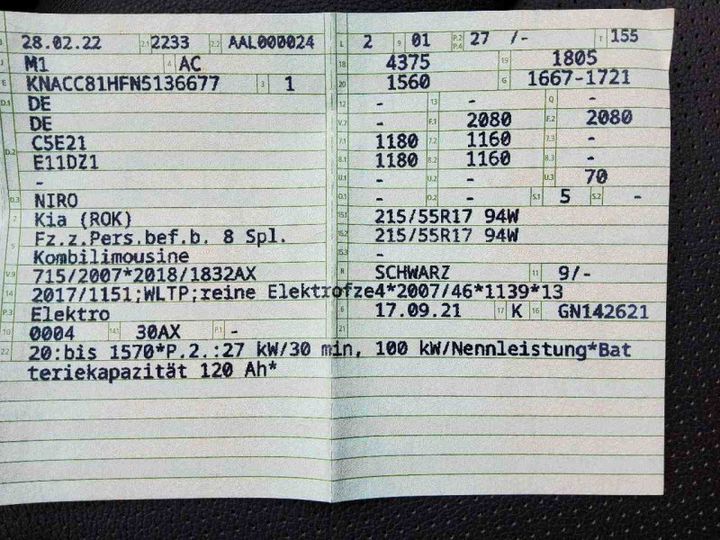 28.02.22 2.1 2233 2.2 AAL000024 L 2 9 01 P.2 P.4 27 /- T 155
J M1 4 AC 18 4375 19 1805
E KNACC81HFN5136677 3 1 20 1560 G 1667-1721
D.1 DE - 13 - Q -
DE V.7 - F.1 2080 F.2 2080
D.2 C5E21 7.1 1180 7.2 1160 7.3 -
E11DZ1 8.1 1180 8.2 1160 8.3 -
- U.1 - U.2 - U.3 70
D.3 NIRO O.1 - O.2 - S.1 5 S.2 -
2 Kia (ROK) 15.1 215/55R17 94W
5 Fz.z.Pers.bef.b. 8 Spl. 15.2 215/55R17 94W
Kombilimousine 15.3 -
V.9 715/2007*2018/1832AX R SCHWARZ 11 9/-
14 2017/1151;WLTP;reine Elektrofze4*2007/46*1139*13
P.3 Elektro 6 17.09.21 17 K 16 GN142621
10 0004 14.1 30AX P.1 - 21
22 20:bis 1570*P.2.:27 kW/30 min, 100 kW/Nennleistung*Bat
teriekapazität 120 Ah*